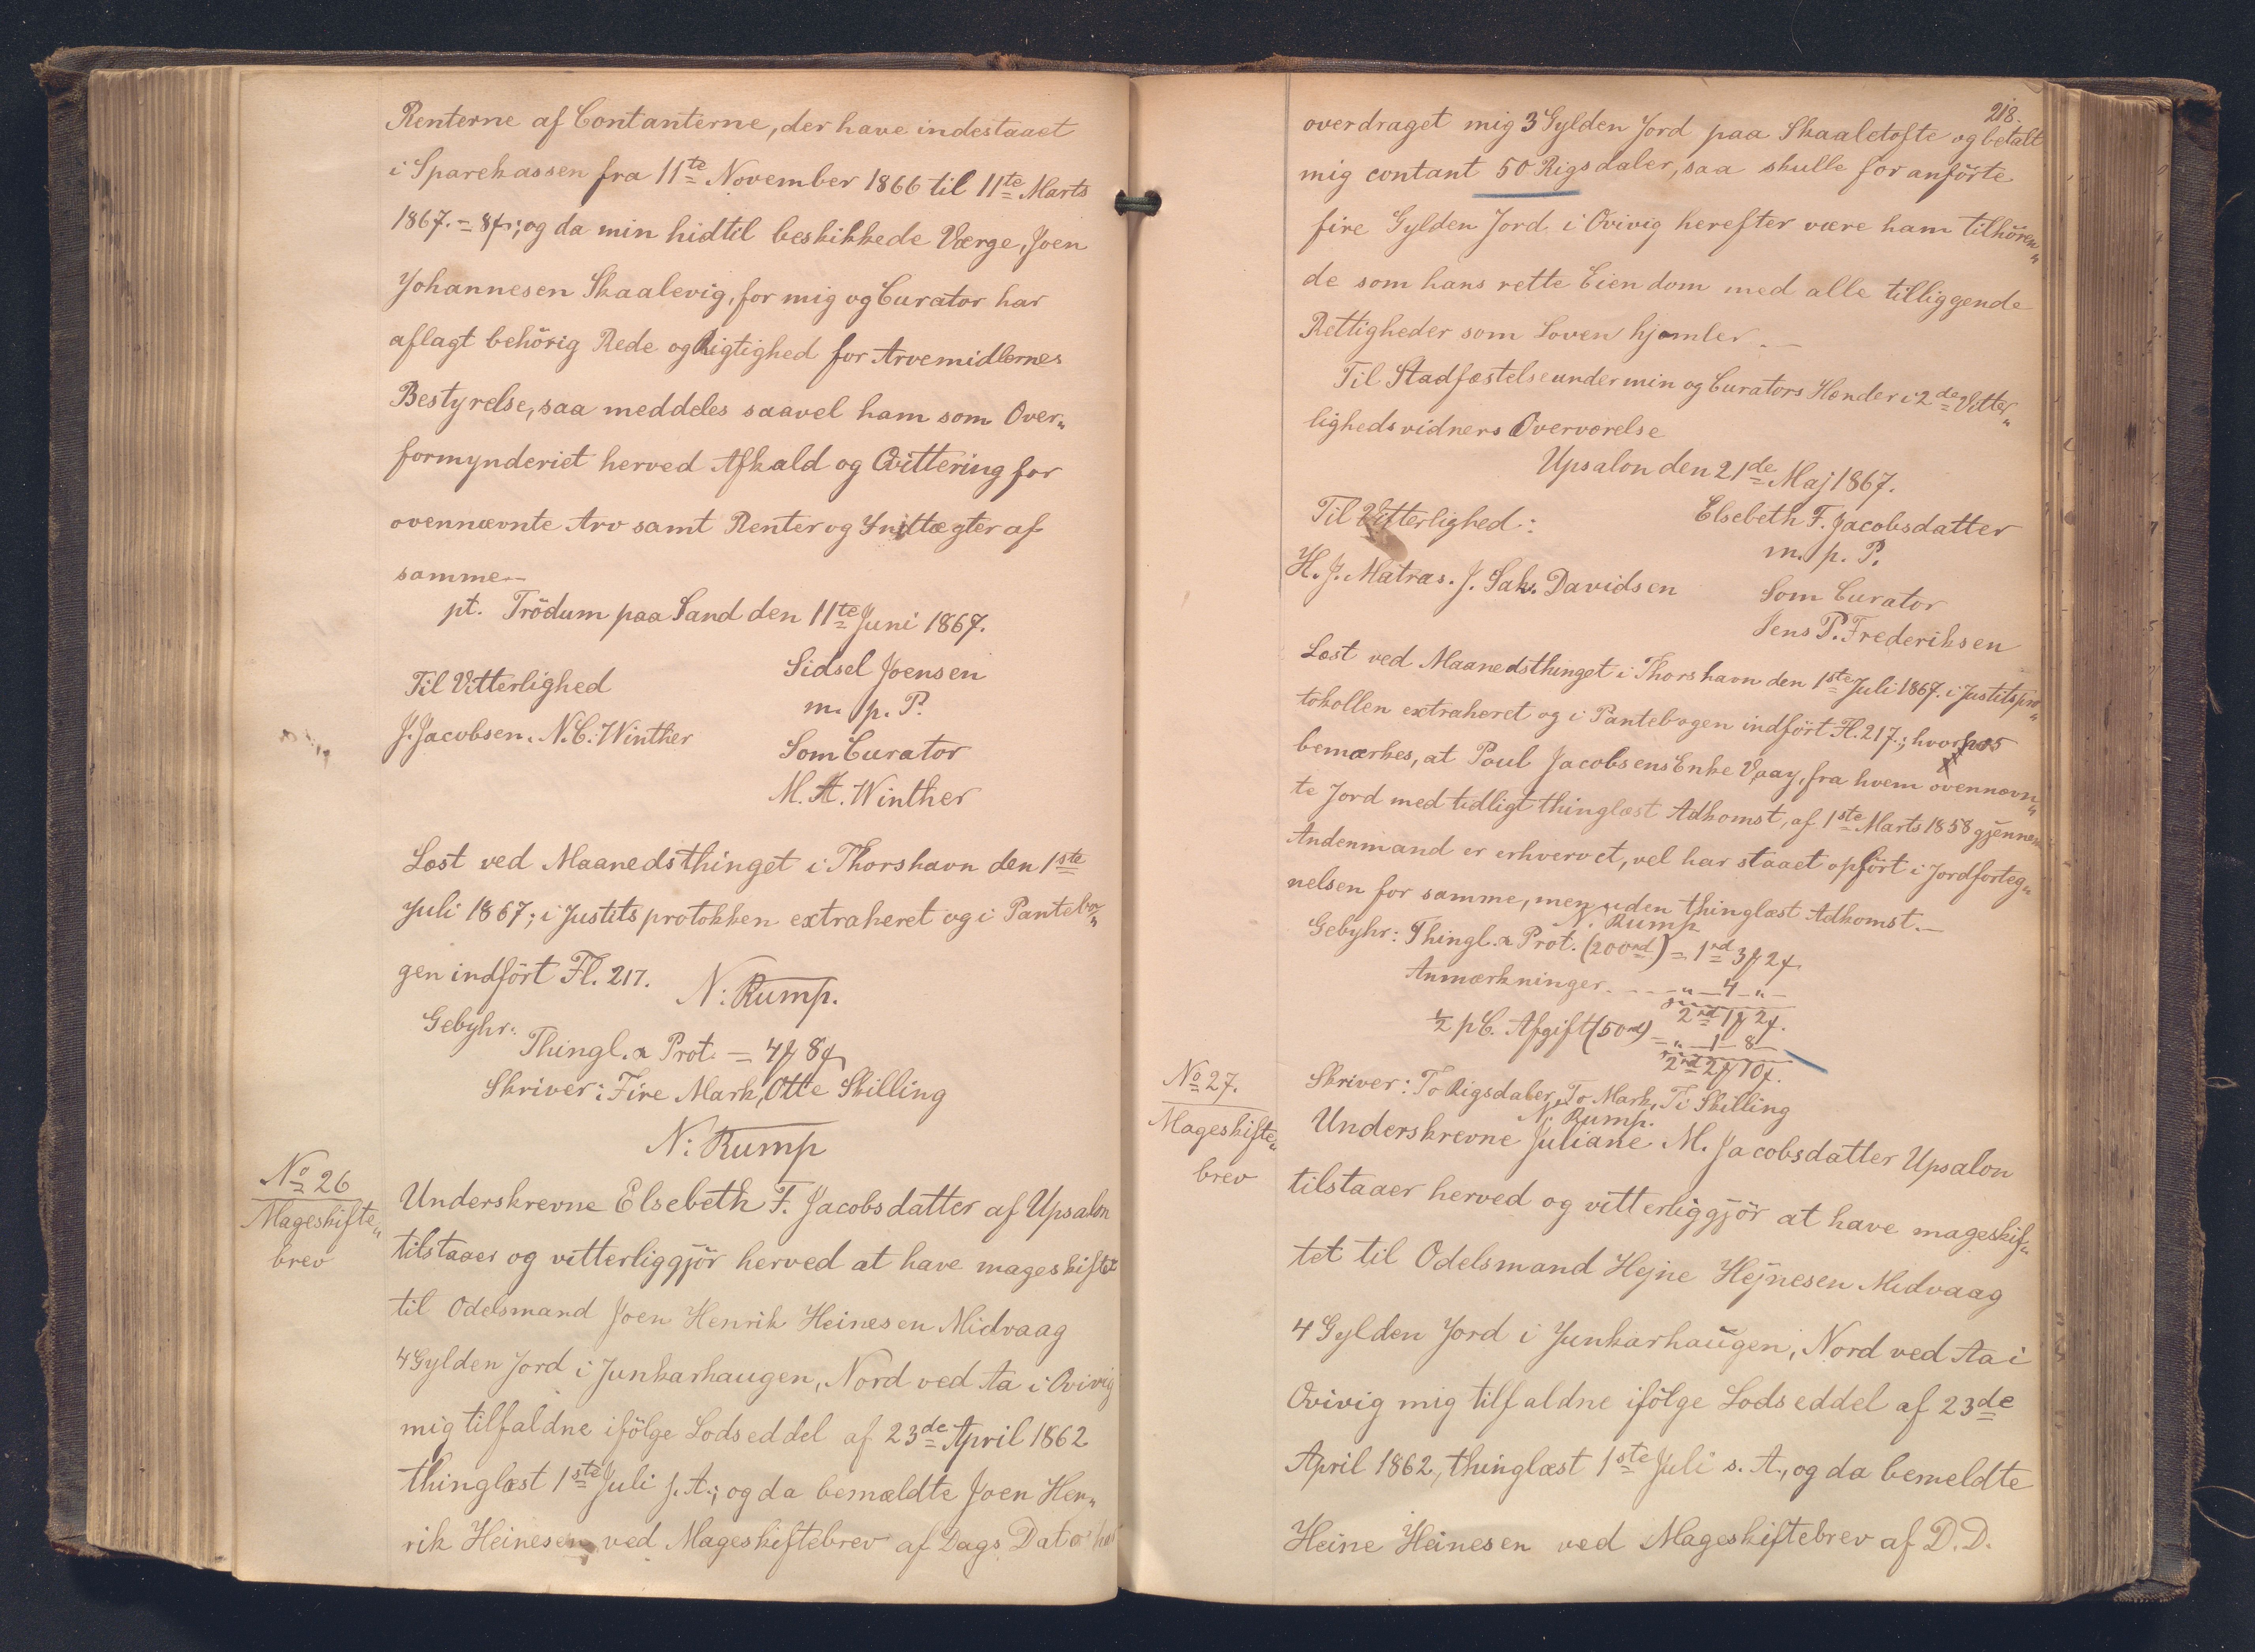 Renterne af Contanterne, der have indestaaet
i Sparekassen fra 11te November 1866 til 11te Marts
1867. = 8f; og da min hidtil beskikkede Værge, Joen
Johannesen Skaalevig, for mig og Curator har
aflagt behörig Rede og Rigtighed for Arvemidlernes
Bestyrelse, saa meddeles saavel ham som Over„
formynderiet herved Afkald og Qvittering for
ovennævnte Arv samt Renter og Indtægter af
samme.-
pt. Trödum paa Sand den 11te Juni 1867.
Til Vitterlighed
J. Jacobsen. N.C. Winther
Sidsel Joensen
m. p. P.
Som Curator
M. A. Winther
Læst ved Maanedsthinget i Thorshavn den 1ste
Juli 1867; i Justitsprotokken extraheret og i Pantebo„
gen indfört Fl. 217.
N: Rump.
Gebyhr:
Thingl. a Prot. = 4 ß 8 f
Skriver: Fire Mark, Otte Skilling
N: Rump
No 26
Mageskifte„
brev
Underskrevne Elsebeth F. Jacobsdatter af Upsalon
tilstaaer og vitterliggjör herved at have mageskiftet
til Odelsmand Joen Henrik Heinesen Midvaag
4 Gylden Jord i Junkarhaugen, Nord ved Aa i Qvivig
mig tilfaldne ifölge Lodseddel af 23de April 1862
thinglæst 1ste Juli s. A.; og da bemældte Joen Hen„
rik Heinesen ved Mageskiftebrev af Dags Dato har
218.
overdraget mig 3 Gylden Jord paa Skaaletofte og betalt
mig contant 50 Rigsdaler, saa skulle foranförte
fire Gylden Jord i Qvivig herefter være ham tilhören„
de som hans rette Eiendom med alle tilliggende
Rettigheder som Loven hjemler. —
Til Stadfæstelse under min og Curators Hænder i 2de Vitter„
lighedsvidners Overværelse
Upsalon den 21de Maj 1867.
Til Vitterlighed:
H. J. Matras. J. Sak. Davidsen
Elsebeth F. Jacobsdatter
m. p. P.
Som Curator
Jens P. Frederiksen
Læst ved Maanedsthinget i Thorshavn den 1ste Juli 1867. i Justitspro„
tokollen extraheret og i Pantebogen indfört Fl. 217.; hvorhos
bemærkes, at Poul Jacobsens Enke Vaag, fra hvem ovennævn„
te Jord med tidligt thinglæst Adkomst, af 1ste Marts 1858 gjennem
Andenmand er erhvervet, vel har staaet opfört i Jordforteg„
nelsen for samme, men uden thinglæst Adkomst. —
N. Rump
Gebyhr: Thingl. a Prot. (200rd) = 1rd 3 ß 2 f
Anmærkninger - - - „ — 4 — „ —
2rd 1 ß 2 f.
½ pC. Afgift (50rd) = „ — 1 — 8 —
2rd 2 ß 10 f.
Skriver: To Rigsdaler, To Mark, Ti Skilling
N: Rump.
No 27.
Mageskifte„
brev
Underskrevne Juliane M. Jacobsdatter Upsalon
tilstaaer herved og vitterliggjör at have mageskif„
tet til Odelsmand Hejne Hejnesen Midvaag
4 Gylden Jord i Junkarhaugen, Nord ved Aa i
Qvivig mig tilfaldne ifölge Lodseddel af 23de
April 1862, thinglæst 1ste Juli s. A., og da bemeldte
Heine Heinesen ved Mageskiftebrev af D. D.